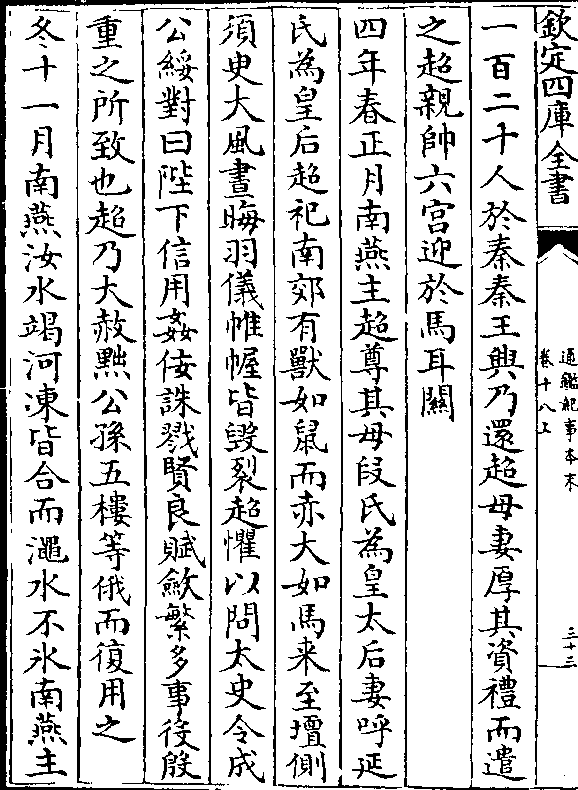 欽定四庫全書
通鑑紀事本末
卷十八上
三十三
一百二十人於秦秦王興乃還超母妻厚其資禮而遣
之超親帥六宮迎於馬耳關
四年春正月南燕主超尊其母段氏為皇太后妻呼延
氏為皇后超祀南郊有獸如鼠而赤大如馬来至壇側
須史大風晝晦羽儀帷幄皆毀裂超懼以問太史令成
公綏對曰陛下信用姦佞誅戮賢良賦斂繁多事役殷
重之所致也超乃大赦黜公孫五樓等俄而復用之
冬十一月南燕汝水竭河凍皆合而澠水不氷南燕主